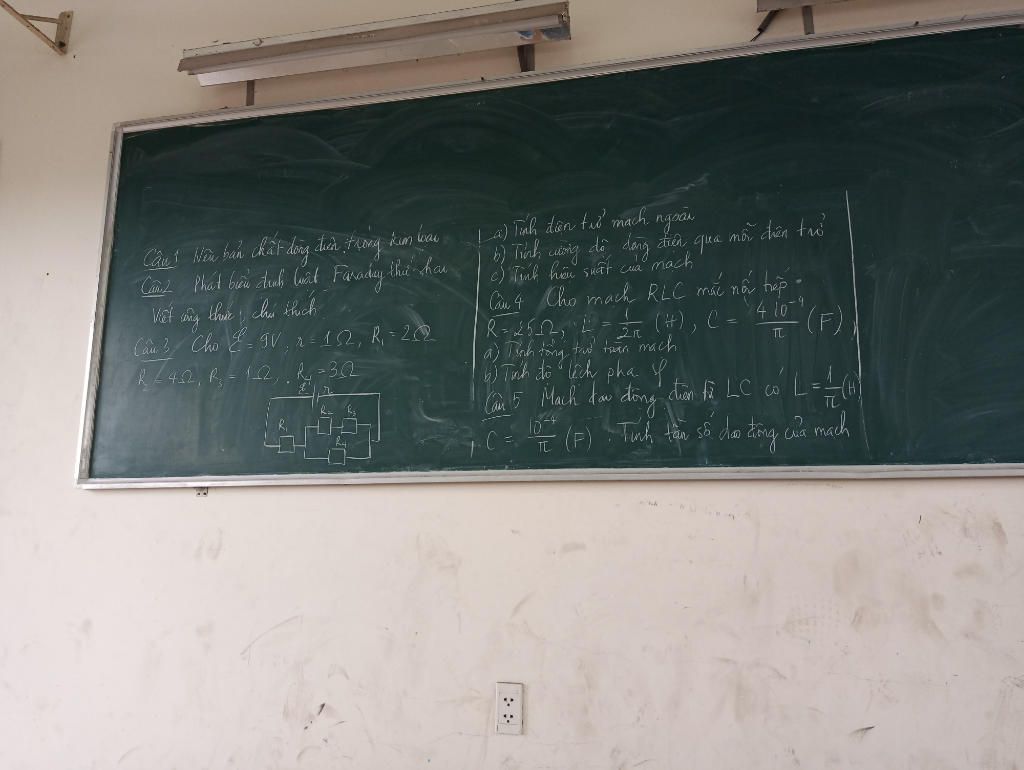 Câu 1 Nêu bản chất dòng điện trong kim loại
Câu 2 Phát biểu định luật Faraday thứ hai
Viết công thức, chú thích
Câu 3 Cho ℰ = 9V, r = 1Ω, R₁ = 2Ω
R₂ = 4Ω, R₃ = 1Ω, R₄ = 3Ω
ℰ r
R₁ R₂ R₃
R₄
a) Tính điện trở mạch ngoài
b) Tính cường độ dòng điện qua mỗi điện trở
c) Tính hiệu suất của mạch
Câu 4 Cho mạch RLC mắc nối tiếp
R = 25Ω, L = 1/2π (H), C = 4 10⁻⁴/π (F),
a) Tính tổng trở toàn mạch
b) Tính độ lệch pha φ
Câu 5 Mạch dao động điện từ LC có L = 1/π (H)
, C = 10⁻⁴/π (F). Tính tần số dao động của mạch